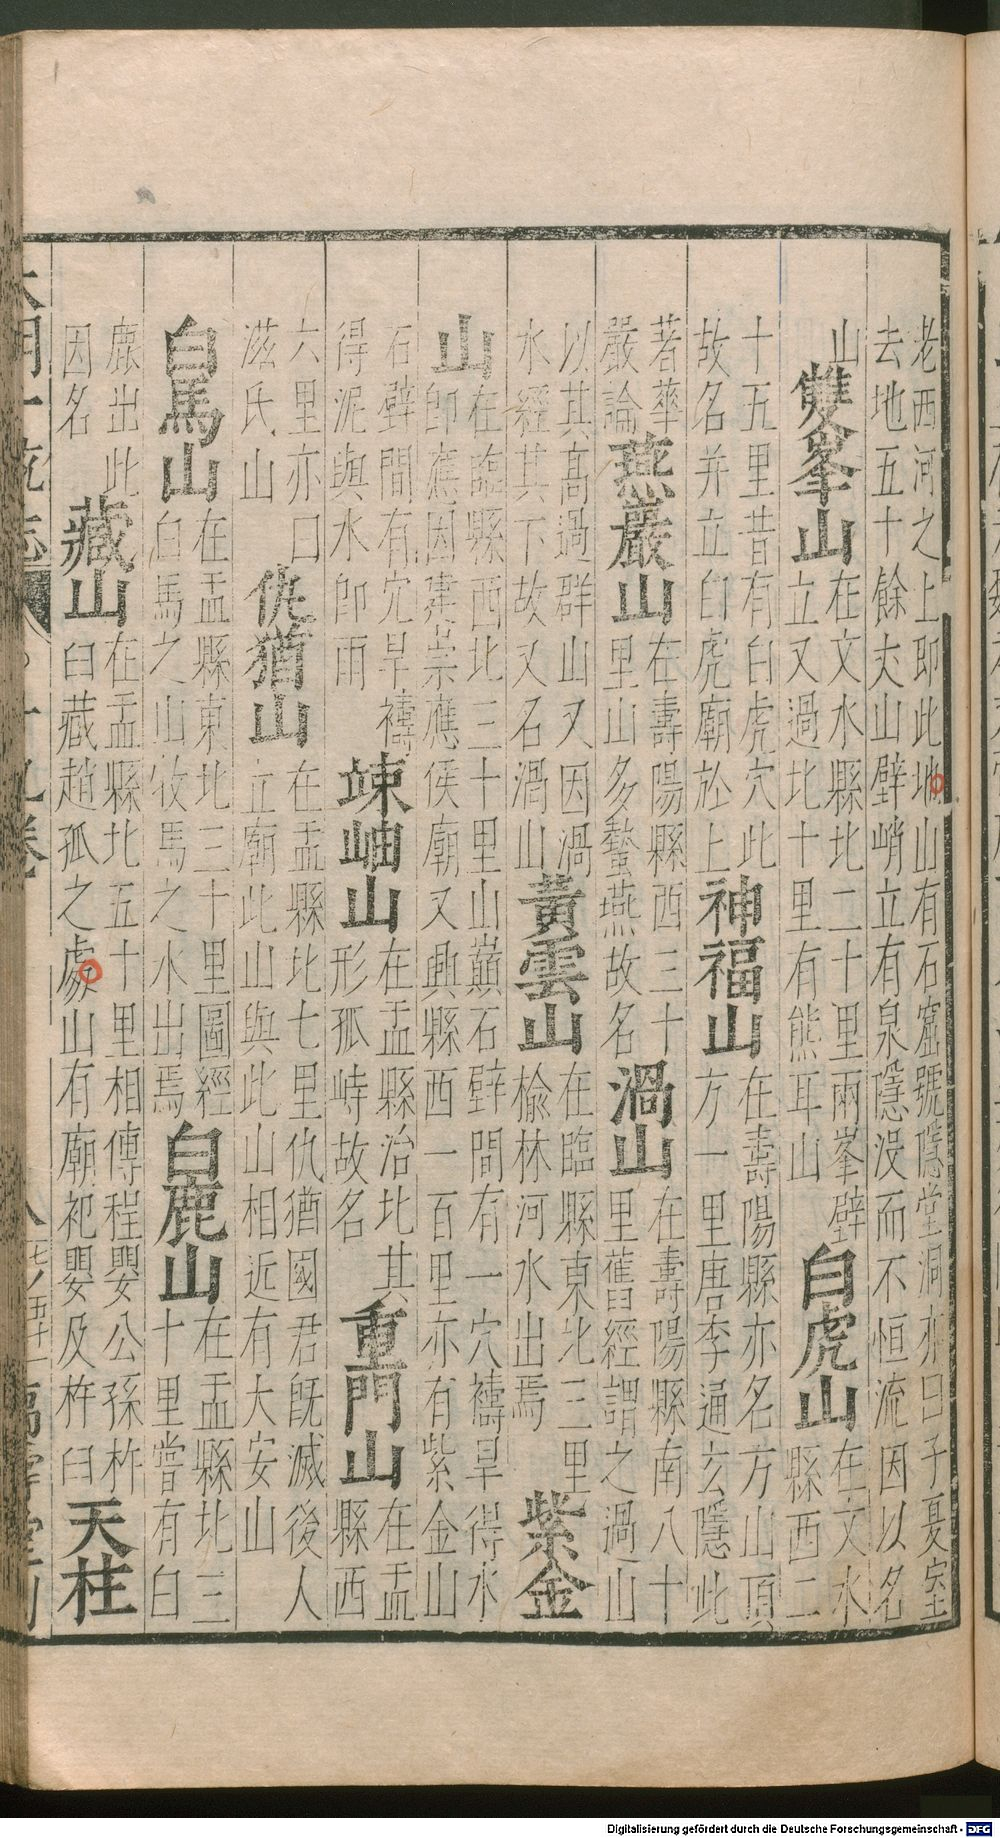 老西河之上即此地山有石窟號隱堂洞亦曰子夏室
去地五十餘丈山壁峭立有泉隱沒而不恒流因以名
山
雙峯山
在文水縣北二十里兩峯壁
立又過北七里有熊耳山
白虎山
在文水
縣西二
十五里昔有白虎穴此
故名并立白虎廟於上
神福山
在壽陽縣亦名方山頂
方一里唐李通玄隱此
著華
嚴論
燕巖山
在壽陽縣西三十
里山多蟄燕故名
渦山
在壽陽縣南八十
里舊經謂之過山
以其高過群山又因渦
水經其下故又名渦山
黃雲山
在臨縣東北三里
榆林河水出焉
紫金
山
在臨縣西北三十里山巔石壁間有一穴禱旱得水
即應因建崇應侯廟又興縣西一百里亦有紫金山
石壁間有穴旱禱
得泥與水即雨
竦岫山
在盂縣治北其
形孤峙故名
重門山
在盂
縣西
六里亦曰
滋氏山
仇猶山
在盂縣北七里仇猶國君既滅後人
立廟此山與此山相近有大安山
白馬山
在盂縣東北三十里圖經
白馬之山牧馬之水出焉
白鹿山
在盂縣北三
十里嘗有白
鹿出此
因名
藏山
在盂縣北五十里相傳程嬰公孫杵
臼藏趙孤之處山有廟祀嬰及杵臼
天柱
大明一統志 十九卷 八 七ノ五十一 萬壽堂刊
Digitalisierung gefördert durch die Deutsche Forschungsgemeinschaft - DFG